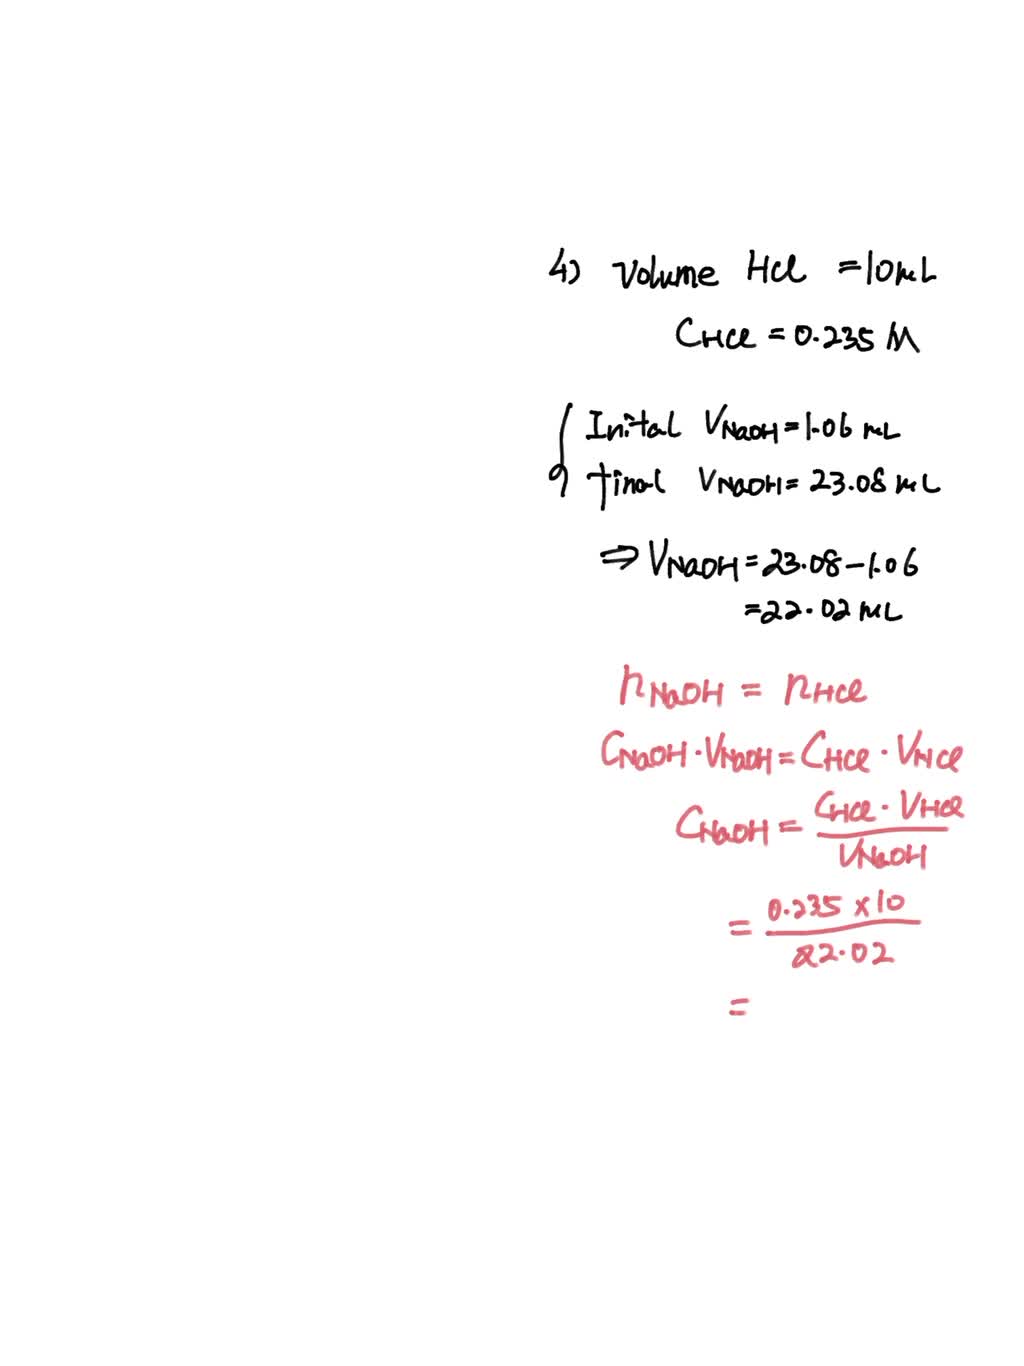 4) Volume HCl = 10 mL
CHCl = 0.235 M
Inital VNaOH = 1.06 mL
final VNaOH = 23.08 mL
⇒ VNaOH = 23.08 - 1.06
= 22.02 mL
nNaOH = nHCl
CNaOH · VNaOH = CHCl · VHCl
CNaOH = CHCl · VHCl / VNaOH
= 0.235 × 10 / 22.02
=